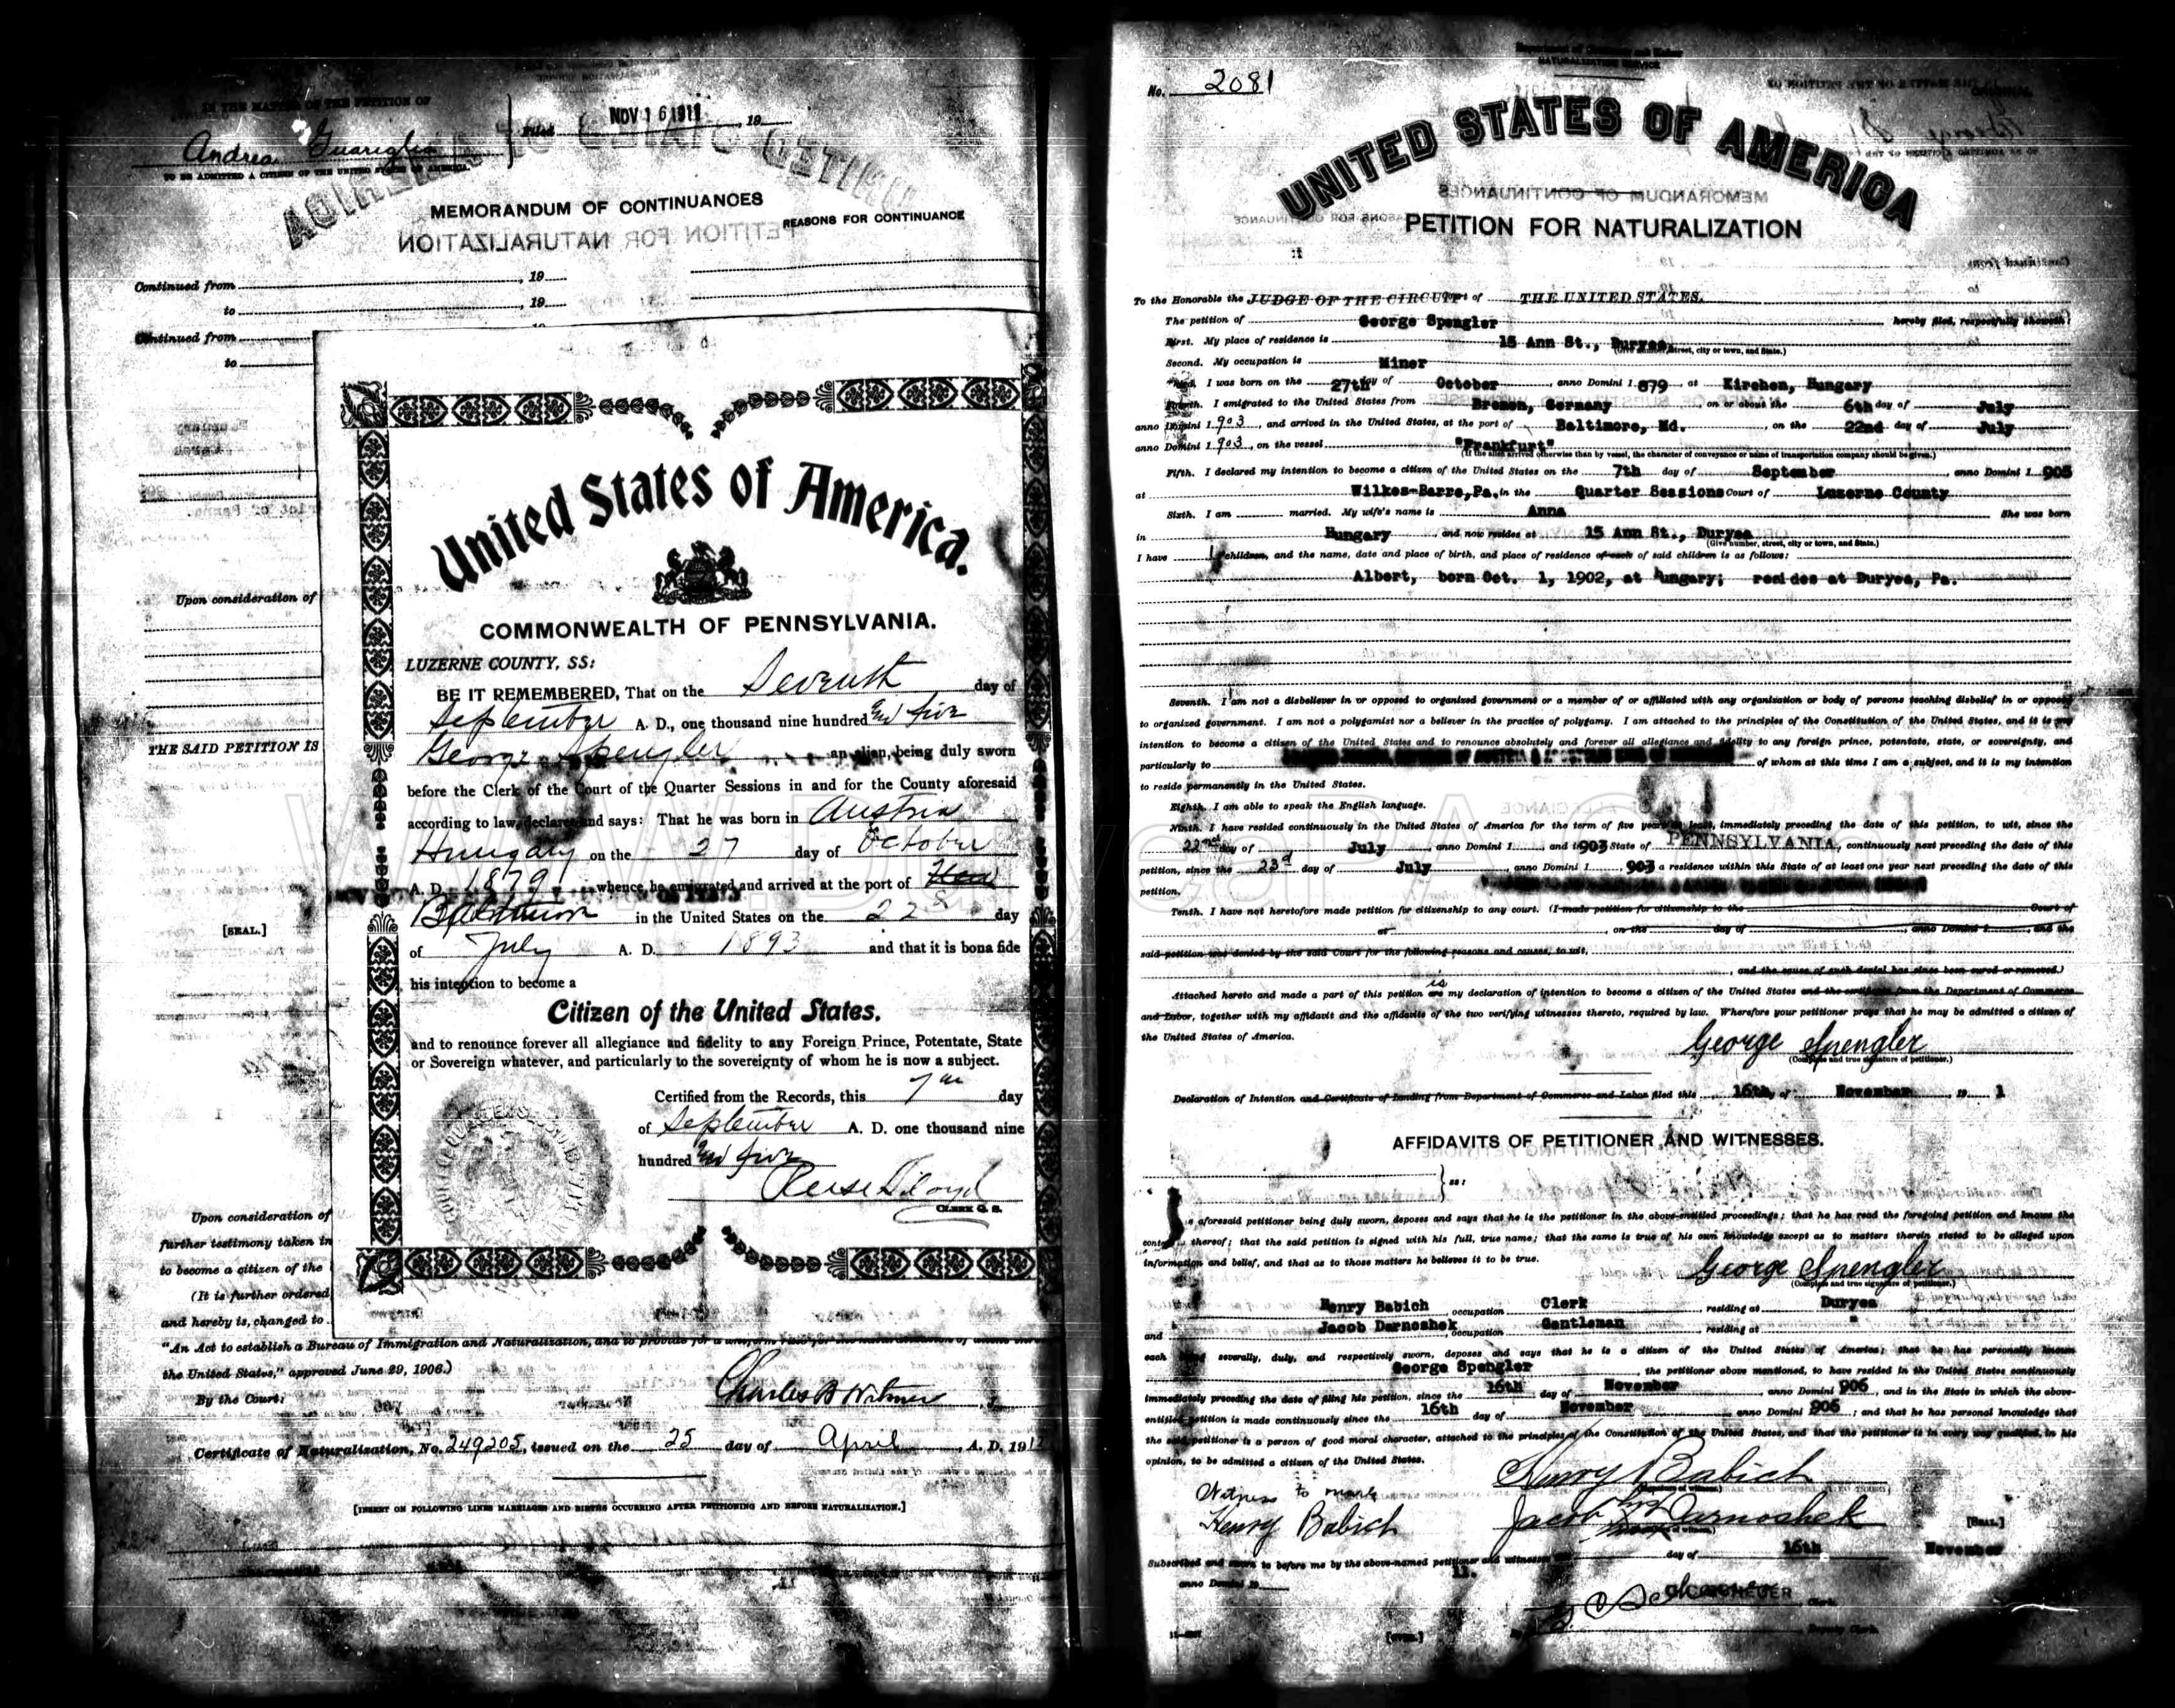 IN THE MATTER OF THE PETITION OF
Andrea Guariglia
Filed NOV 16 1911, 19
TO BE ADMITTED A CITIZEN OF THE UNITED STATES OF AMERICA
MEMORANDUM OF CONTINUANCES
REASONS FOR CONTINUANCE
Continued from , 19
to , 19
Continued from
to
Upon consideration of
THE SAID PETITION IS
[SEAL.]
Upon consideration of
further testimony taken in
to become a citizen of the
(It is further ordered
and hereby is, changed to
"An Act to establish a Bureau of Immigration and Naturalization, and to provide for a
the United States," approved June 29, 1906.)
By the Court:
Charles B Witmer
Certificate of Naturalization, No. 249205, issued on the 25 day of April, A. D. 191
[INSERT ON FOLLOWING LINES MARRIAGES AND BIRTHS OCCURRING AFTER PETITIONING AND BEFORE NATURALIZATION.]
United States of America.
COMMONWEALTH OF PENNSYLVANIA.
LUZERNE COUNTY, SS:
BE IT REMEMBERED, That on the Seventh day of
September A. D., one thousand nine hundred and five
George Spengler an alien, being duly sworn
before the Clerk of the Court of the Quarter Sessions in and for the County aforesaid
according to law, declares and says: That he was born in Austria
Hungary on the 27 day of October
A. D. 1879 whence he emigrated and arrived at the port of New
Baltimore in the United States on the 22d day
of July A. D. 1893 and that it is bona fide
his intention to become a
Citizen of the United States.
and to renounce forever all allegiance and fidelity to any Foreign Prince, Potentate, State
or Sovereign whatever, and particularly to the sovereignty of whom he is now a subject.
Certified from the Records, this 7th day
of September A. D. one thousand nine
hundred and five
Reese Lloyd
CLERK Q. S.
Department of Commerce and Labor
NATURALIZATION SERVICE
No. 2081
UNITED STATES OF AMERICA
PETITION FOR NATURALIZATION
To the Honorable the JUDGE OF THE CIRCUIT of THE UNITED STATES.
The petition of George Spengler hereby filed, respectfully showeth:
First. My place of residence is 15 Ann St., Duryea,
(Give number, street, city or town, and State.)
Second. My occupation is Miner
Third. I was born on the 27th day of October, anno Domini 1 879, at Kirchen, Hungary
Fourth. I emigrated to the United States from Bremen, Germany on or about the 6th day of July
anno Domini 1 903, and arrived in the United States, at the port of Baltimore, Md., on the 22nd day of July
anno Domini 1 903, on the vessel "Frankfurt"
(If the alien arrived otherwise than by vessel, the character of conveyance or name of transportation company should be given.)
Fifth. I declared my intention to become a citizen of the United States on the 7th day of September, anno Domini 1 905
at Wilkes-Barre, Pa. in the Quarter Sessions Court of Luzerne County
Sixth. I am married. My wife's name is Anna She was born
in Hungary and now resides at 15 Ann St., Duryea
(Give number, street, city or town, and State.)
I have 1 children, and the name, date and place of birth, and place of residence of each of said children is as follows:
Albert, born Oct. 1, 1902, at Hungary; resides at Duryea, Pa.
Seventh. I am not a disbeliever in or opposed to organized government or a member of or affiliated with any organization or body of persons teaching disbelief in or opposed
to organized government. I am not a polygamist nor a believer in the practice of polygamy. I am attached to the principles of the Constitution of the United States, and it is my
intention to become a citizen of the United States and to renounce absolutely and forever all allegiance and fidelity to any foreign prince, potentate, state, or sovereignty, and
particularly to of whom at this time I am a subject, and it is my intention
to reside permanently in the United States.
Eighth. I am able to speak the English language.
Ninth. I have resided continuously in the United States of America for the term of five years at least, immediately preceding the date of this petition, to wit, since the
22nd day of July, anno Domini 1 903 and in the State of PENNSYLVANIA, continuously next preceding the date of this
petition, since the 23d day of July, anno Domini 1 903 a residence within this State of at least one year next preceding the date of this
petition.
Tenth. I have not heretofore made petition for citizenship to any court. (I made petition for citizenship to the Court of
at , on the day of , anno Domini 1 , and the
said petition was denied by the said Court for the following reasons and causes, to wit,
, and the cause of such denial has since been cured or removed.)
Attached hereto and made a part of this petition are is my declaration of intention to become a citizen of the United States and the certificate from the Department of Commerce
and Labor, together with my affidavit and the affidavits of the two verifying witnesses thereto, required by law. Wherefore your petitioner prays that he may be admitted a citizen of
the United States of America.
George Spengler
(Complete and true signature of petitioner.)
Declaration of Intention and Certificate of Landing from Department of Commerce and Labor filed this 16th day of November, 19 1
AFFIDAVITS OF PETITIONER AND WITNESSES.
ss:
The aforesaid petitioner being duly sworn, deposes and says that he is the petitioner in the above-entitled proceedings; that he has read the foregoing petition and knows the
contents thereof; that the said petition is signed with his full, true name; that the same is true of his own knowledge except as to matters therein stated to be alleged upon
information and belief, and that as to those matters he believes it to be true.
George Spengler
(Complete and true signature of petitioner.)
Henry Babich, occupation Clerk, residing at Duryea
and Jacob Darnoshek, occupation Gentleman, residing at "
each being severally, duly, and respectively sworn, deposes and says that he is a citizen of the United States of America; that he has personally known
George Spengler, the petitioner above mentioned, to have resided in the United States continuously
immediately preceding the date of filing his petition, since the 16th day of November, anno Domini 906, and in the State in which the above-
entitled petition is made continuously since the 16th day of November, anno Domini 906; and that he has personal knowledge that
the said petitioner is a person of good moral character, attached to the principles of the Constitution of the United States, and that the petitioner is in every way qualified, in his
opinion, to be admitted a citizen of the United States.
Henry Babich
(Signature of witness.)
Witness to mark
Henry Babich
Jacob X Darnoshek
[SEAL.]
Subscribed and sworn to before me by the above-named petitioner and witnesses day of 16th November
anno Domini 19 11.
Clerk.
[OVER.]
By Deputy Clerk.
WWW.DuryeaPA.com